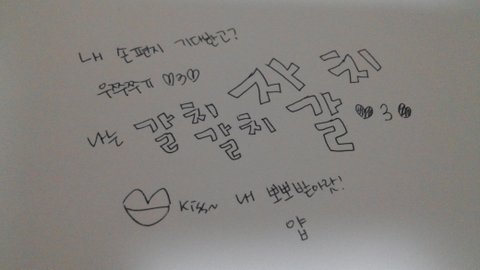 내 손편지 기대한고?
우쭈쭈기 ♡3♡
나는 갈치 갈치 갈 자 치 3
Kiss~ 내 뽀뽀받아랏!
얍